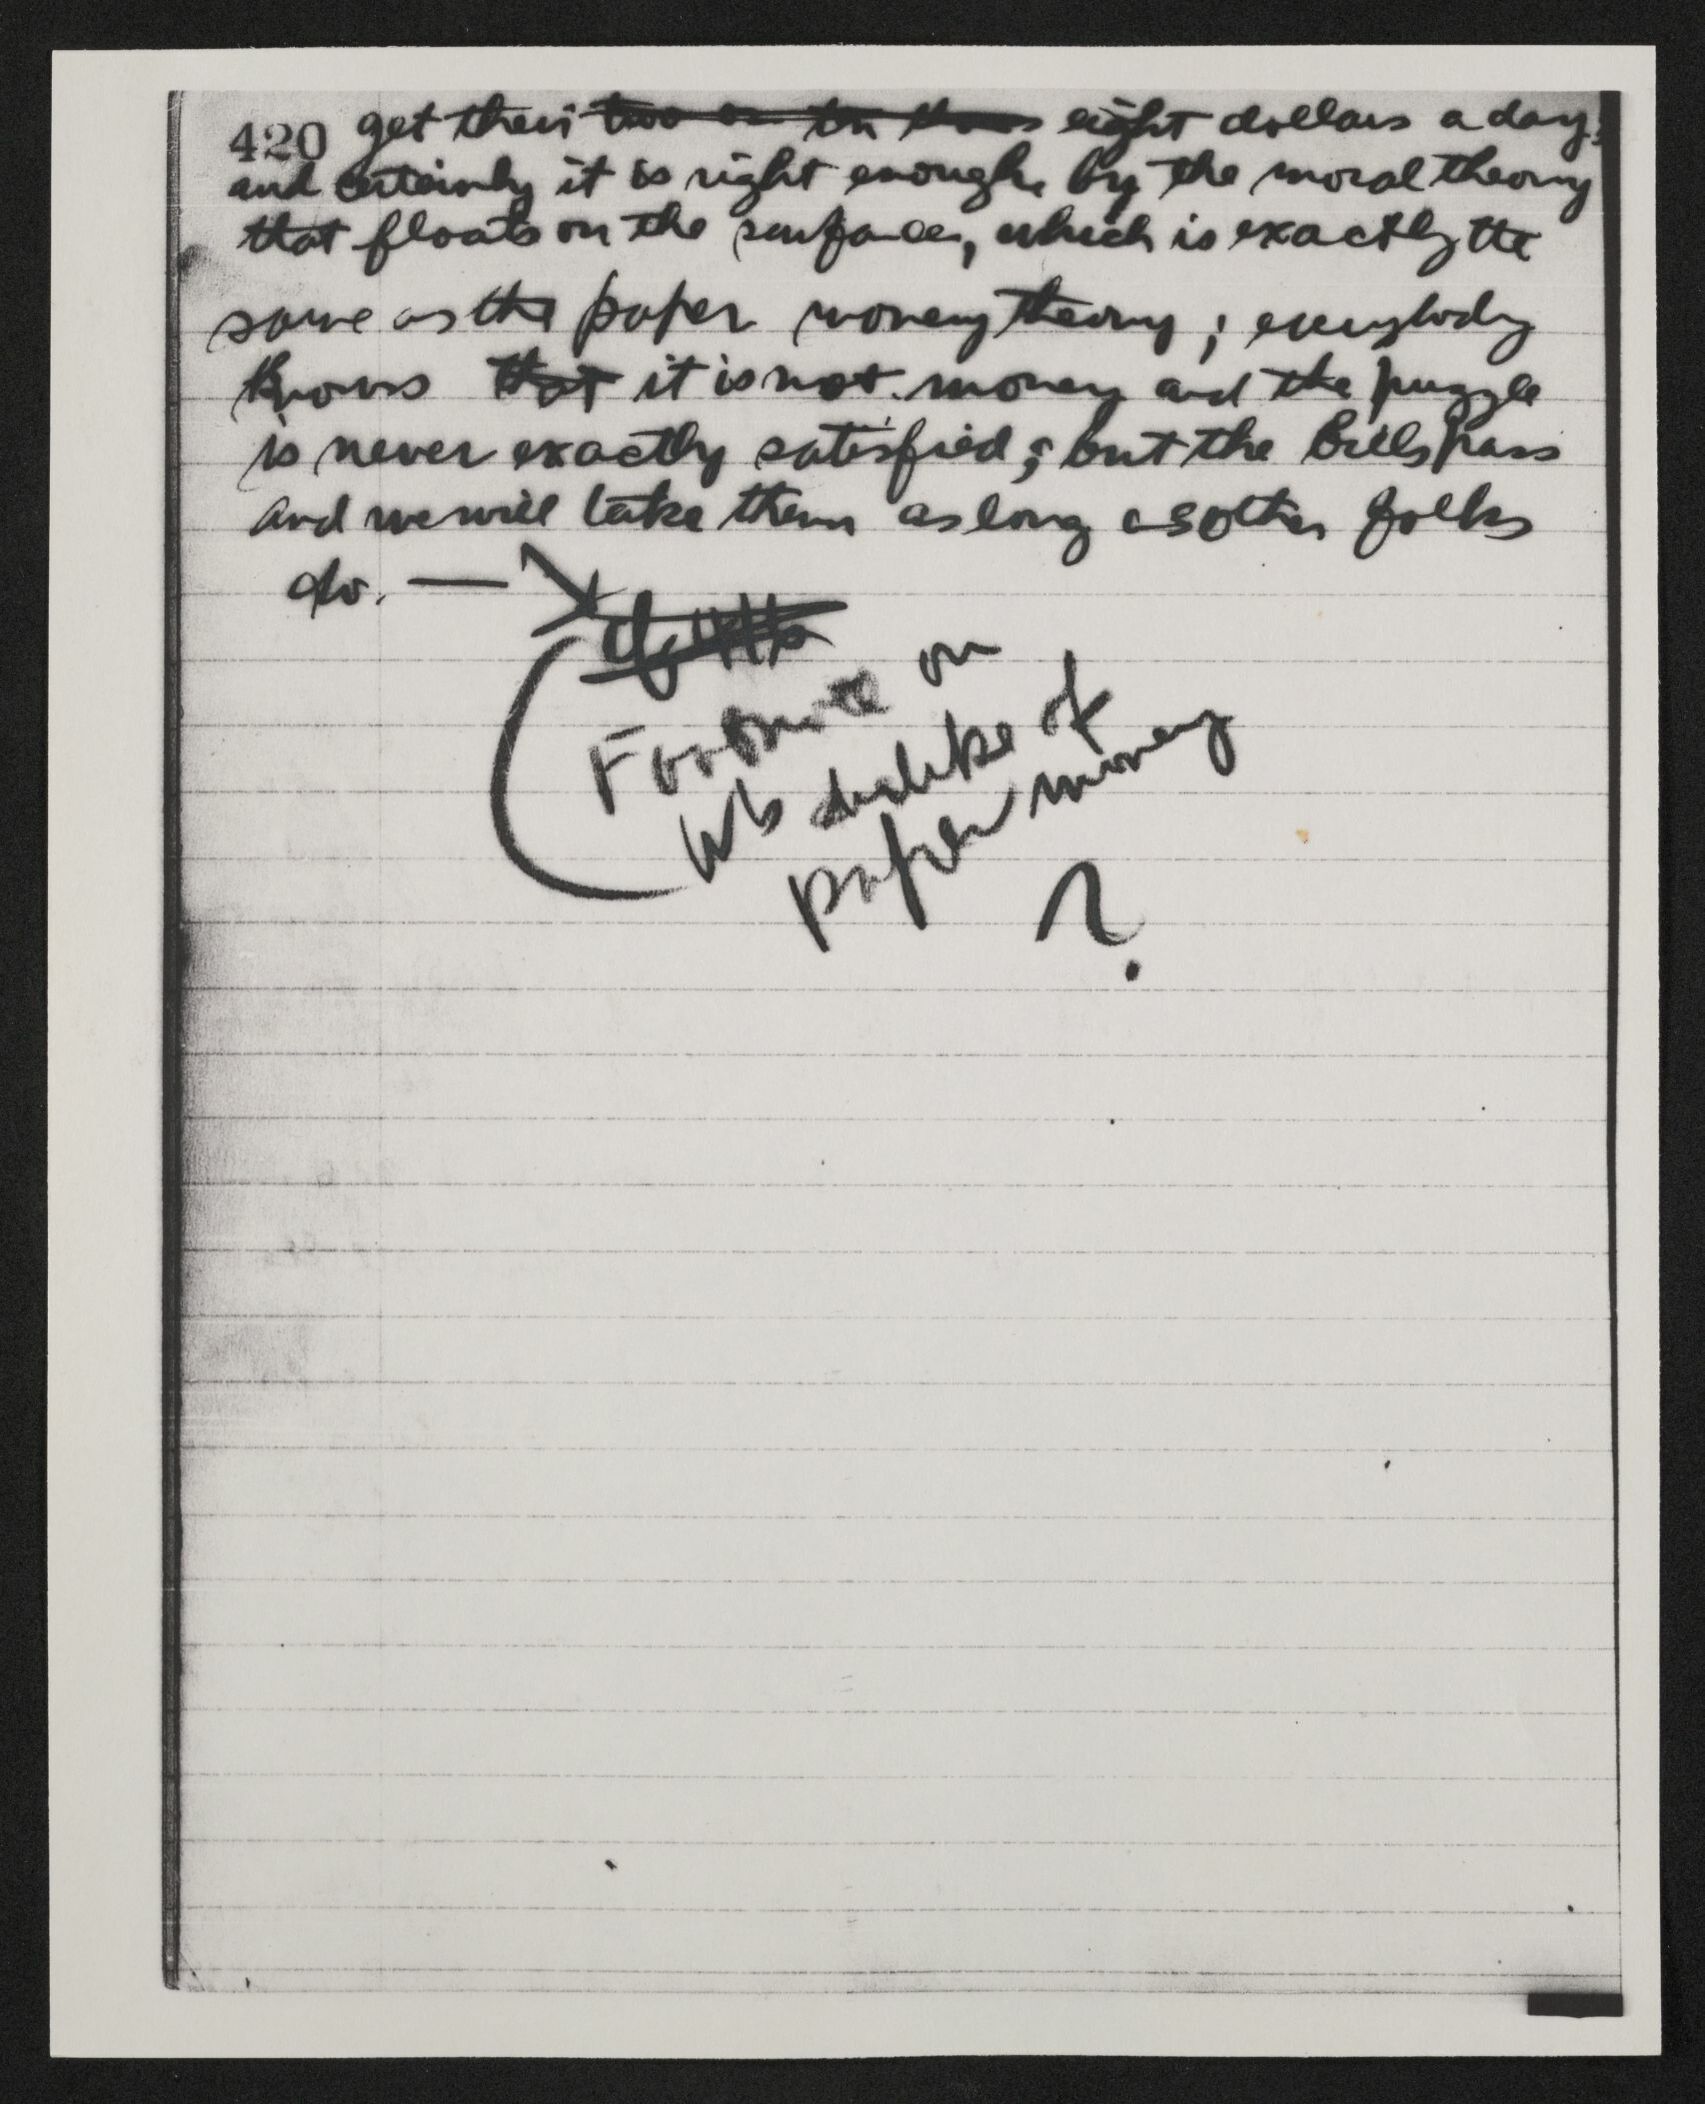 420 get their two or in the eight dollars a day,
and certainly it is right enough, by the moral theory
that floats on the surface, which is exactly the
same as the paper money theory; everybody
knows that it is not money and the puzzle
is never exactly satisfied; but the bills pass
and we will take them as long as other folks
do. —
Footnote on
Wb dislike of
paper money
?